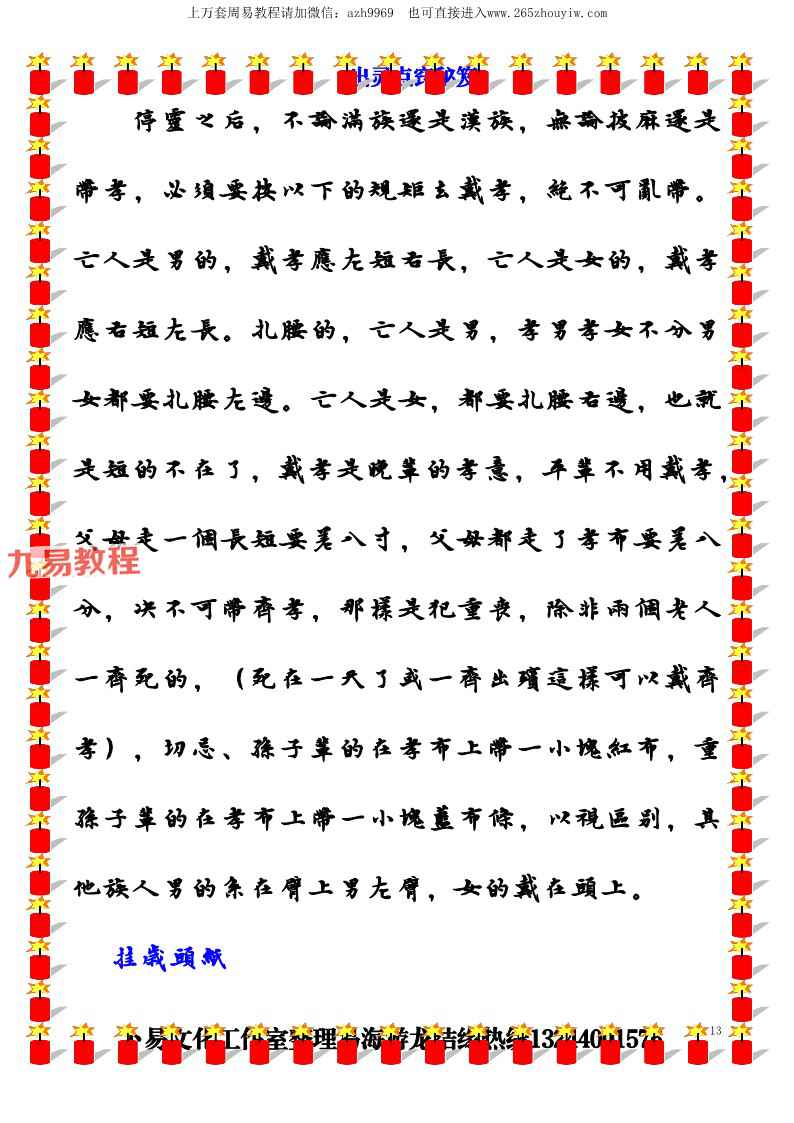 上万套周易教程请加微信：azh9969　也可直接进入www.265zhouyiw.com
停靈之后，不論滿族還是漢族，無論披麻還是
帶孝，必須要按以下的規矩去戴孝，絶不可亂帶。
亡人是男的，戴孝應左短右長，亡人是女的，戴孝
應右短左長。扎腰的，亡人是男，孝男孝女不分男
女都要扎腰左邊。亡人是女，都要扎腰右邊，也就
是短的不在了，戴孝是晚輩的孝意，平輩不用戴孝，
父母走一個長短要差八寸，父母都走了孝布要差八
分，决不可帶齊孝，那樣是犯重喪，除非兩個老人
一齊死的，（死在一天了或一齊出殯這樣可以戴齊
孝），切忌、孫子輩的在孝布上帶一小塊紅布，重
孫子輩的在孝布上帶一小塊藍布條，以視區别，其
他族人男的系在臂上男左臂，女的戴在頭上。
九易教程
挂歲頭紙
13